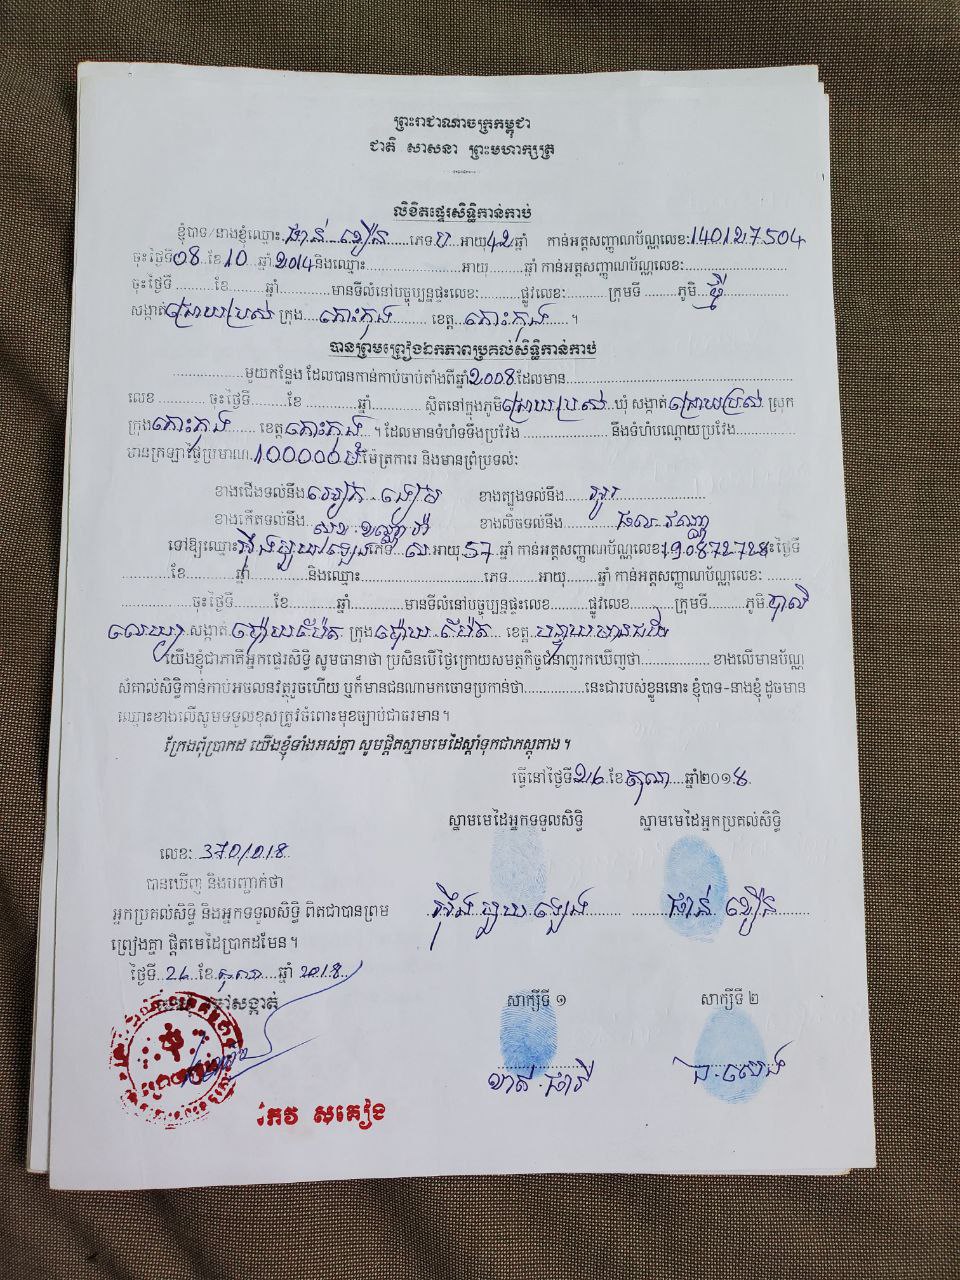 ព្រះរាជាណាចក្រកម្ពុជា
ជាតិ សាសនា ព្រះមហាក្សត្រ
លិខិតផ្ទេរសិទ្ធិកាន់កាប់
ខ្ញុំបាទ/នាងខ្ញុំឈ្មោះ ផាន់ ខឿន ភេទ ប អាយុ 42 ឆ្នាំ កាន់អត្តសញ្ញាណប័ណ្ណលេខៈ 140127504
ចុះថ្ងៃទី 08 ខែ 10 ឆ្នាំ 2014 និងឈ្មោះ អាយុ ឆ្នាំ កាន់អត្តសញ្ញាណប័ណ្ណលេខៈ
ចុះថ្ងៃទី ខែ ឆ្នាំ មានទីលំនៅបច្ចុប្បន្នផ្ទះលេខៈ ផ្លូវលេខៈ ក្រុមទី ភូមិ ថ្មី
សង្កាត់ ជ្រោយប្រស់ ក្រុង កោះកុង ខេត្ត កោះកុង ។
បានព្រមព្រៀងឯកភាពប្រគល់សិទ្ធិកាន់កាប់
មួយកន្លែង ដែលបានកាន់កាប់ចាប់តាំងពីឆ្នាំ 2008 ដែលមាន
លេខ ចុះថ្ងៃទី ខែ ឆ្នាំ ស្ថិតនៅក្នុងភូមិ ជ្រោយប្រស់ ឃុំ សង្កាត់ ជ្រោយប្រស់ ស្រុក
ក្រុង កោះកុង ខេត្ត កោះកុង ។ ដែលមានទំហំទទឹងប្រវែង និងទំហំបណ្តោយប្រវែង
មានក្រឡាផ្ទៃប្រមាណ 100000 ម៉ែត្រការេ និងមានព្រំប្រទល់ៈ
ខាងជើងទល់នឹង ខាងត្បូងទល់នឹង អូរ
ខាងកើតទល់នឹង ខាងលិចទល់នឹង ផល វណ្ណា
ទៅឱ្យឈ្មោះ អ៊ឹង ម្ងួយ ឡេង ភេទ ស អាយុ 57 ឆ្នាំ កាន់អត្តសញ្ញាណប័ណ្ណលេខៈ ចុះថ្ងៃទី
ខែ ឆ្នាំ និងឈ្មោះ ភេទ អាយុ ឆ្នាំ កាន់អត្តសញ្ញាណប័ណ្ណលេខៈ
ចុះថ្ងៃទី ខែ ឆ្នាំ មានទីលំនៅបច្ចុប្បន្នផ្ទះលេខ ផ្លូវលេខ ក្រុមទី ភូមិ បាលី
លេយ្យ សង្កាត់ ប៉ោយប៉ែត ក្រុង ប៉ោយប៉ែត ខេត្ត បន្ទាយមានជ័យ
យើងខ្ញុំជាភាគីអ្នកផ្ទេរសិទ្ធិ សូមធានាថា ប្រសិនបើថ្ងៃក្រោយសមត្ថកិច្ចជំនាញរកឃើញថា ខាងលើមានប័ណ្ណ
សំគាល់សិទ្ធិកាន់កាប់អចលនវត្ថុរួចហើយ ឬក៏មានជនណាមកចោទប្រកាន់ថា នេះជារបស់ខ្លួននោះ ខ្ញុំបាទ-នាងខ្ញុំ ដូចមាន
ឈ្មោះខាងលើសូមទទួលខុសត្រូវចំពោះមុខច្បាប់ជាធរមាន។
ក្រែងពុំប្រាកដ យើងខ្ញុំទាំងអស់គ្នា សូមផ្តិតស្នាមមេដៃស្តាំទុកជាភស្តុតាង ។
ធ្វើនៅថ្ងៃទី 26 ខែ តុលា ឆ្នាំ២០១8
ស្នាមមេដៃអ្នកទទួលសិទ្ធិ ស្នាមមេដៃអ្នកប្រគល់សិទ្ធិ
លេខៈ 370/018
បានឃើញ និងបញ្ជាក់ថា
អ្នកប្រគល់សិទ្ធិ និងអ្នកទទួលសិទ្ធិ ពិតជាបានព្រម
អ៊ឹង ម្ងួយ ឡេង ផាន់ ខឿន
ព្រៀងគ្នា ផ្តិតមេដៃប្រាកដមែន។
ថ្ងៃទី 26 ខែ តុលា ឆ្នាំ 2018
ចៅសង្កាត់
សាក្សីទី ១ សាក្សីទី ២
កែវ សុគៀង